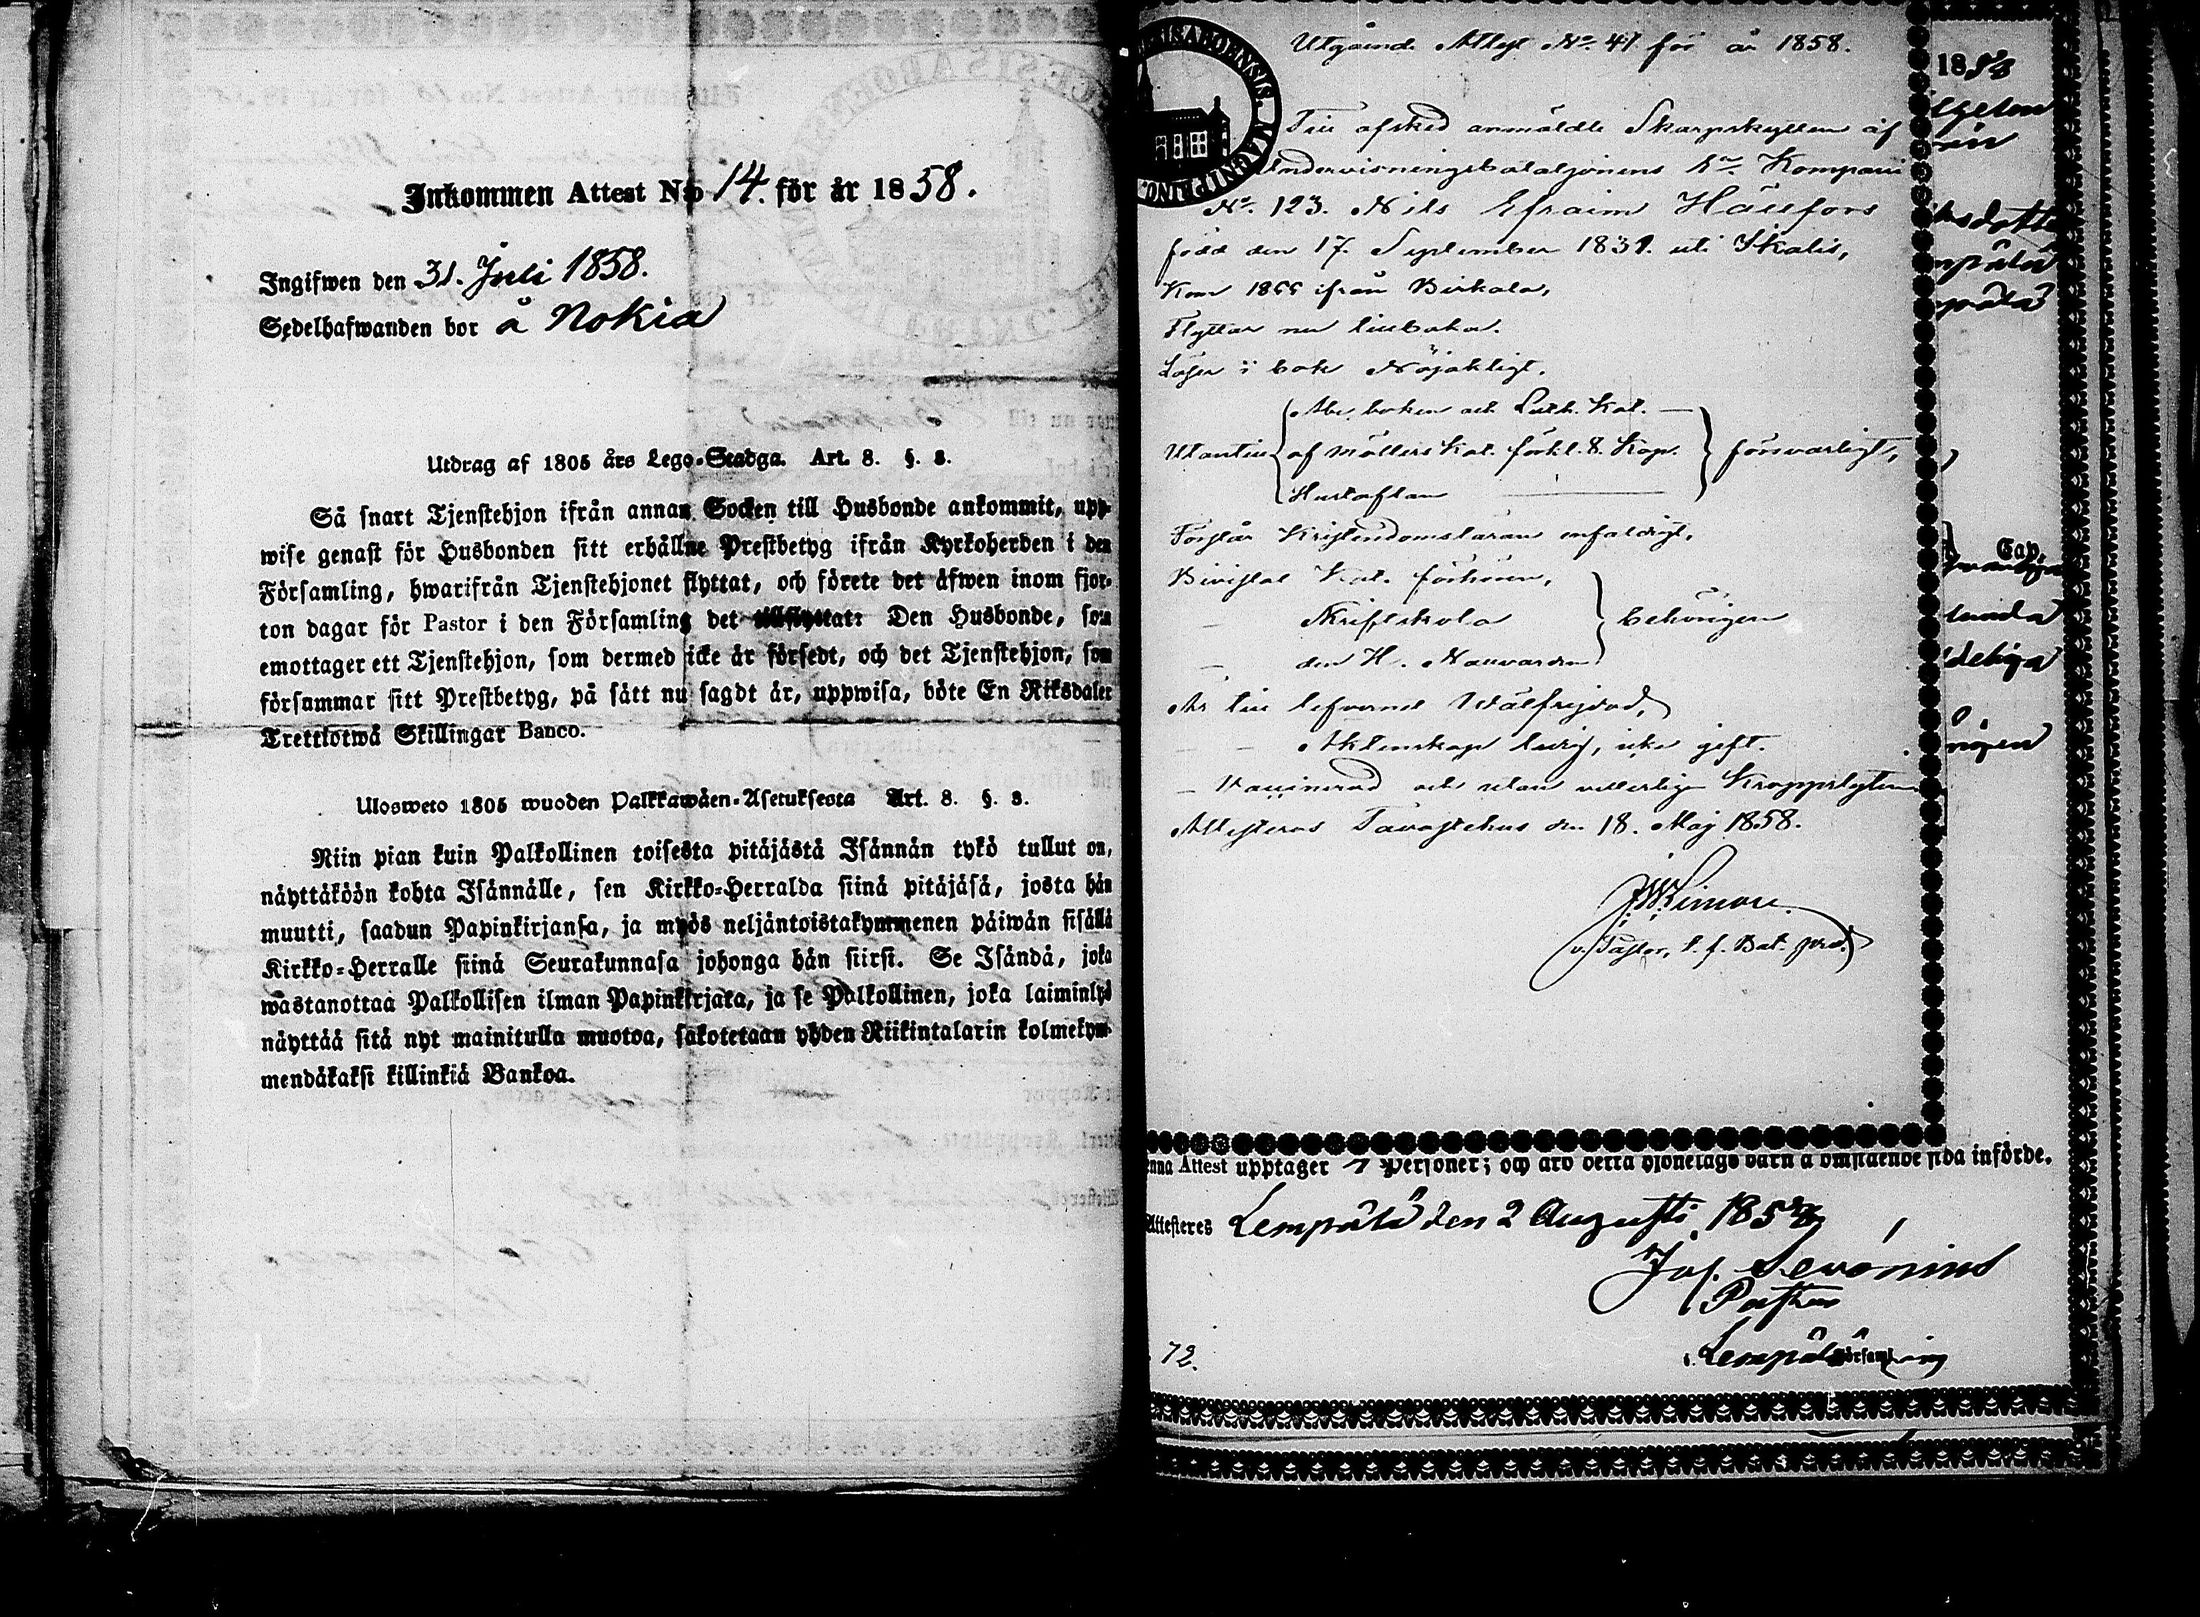 Inkommen Attest N:o 14. för år 1858.
Ingifwen den 31. Juli 1858.
Sedelhafwanden bor å Nokia
Utdrag af 1805 års Lego-Stadga. Art. 8. §. 8.
Så snart Tjenstehjon ifrån annan Socken till Husbonde ankommit, upp-
wise genast för Husbonden sitt erhållne Prestbetyg ifrån Kyrkoherden i den
Församling, hwarifrån Tjenstehjonet flyttat, och förete det äfwen inom fjor-
ton dagar för Pastor i den Församling det tillflyttat: Den Husbonde, som
emottager ett Tjenstehjon, som dermed icke är försedt, och det Tjenstehjon, som
försummar sitt Prestbetyg, på sätt nu sagdt är, uppwisa, böte En Riksdaler
Trettiotwå Skillingar Banco.
Ulosweto 1805 wuoden Palkkawäen-Asetuksesta Art. 8. §. 8.
Niin pian kuin Palkollinen toisesta pitäjästä Isännän tykö tullut on,
näyttäköön kohta Isännälle, sen Kirkko-Herralda siinä pitäjäsä, josta hän
muutti, saadun Papinkirjansa, ja myös neljäntoistakymmenen päiwän sisällä
Kirkko-Herralle siinä Seurakunnasa johonga hän siirsi. Se Isändä, joka
wastanottaa Palkollisen ilman Papinkirjata, ja se Palkollinen, joka laiminlyö
näyttää sitä nyt mainitulla muotoa, sakotetaan yhden Riikintalarin kolmekym-
mendäkaksi killinkiä Bankoa.
Utgående Attest No. 41 för år 1858.
Till afsked anmäldte Skarpskytten af
Undervisningsbataljonens Kompani
No. 123. Nils Efraim Hällfors
född den 17. September 1831. uti Ikalis,
Kom 1855 ifrån Birkala,
Flyttar nu tillbaka.
Läser i bok Nöjaktigt.
Abc boken och Luth. Kat.
Utantill af Möllers Kat. förkl. 8. Kap. försvarligt,
Hustaflan
Förstår Kristendomsläran enfaldigt,
Bivistat Kat. förhören,
Skriftskola behörigen
den H. Nattvarden
Är till lefvernet Wälfrejdad,
Äktenskap ledig, icke gift.
Vaccinerad och utan vitterliga Kroppslyten
Attesteras Tavastehus den 18. Maj 1858.
v. Pastor, Bat. pred.
1858
Cap.
enna Attest upptager 1 Personer; och äro detta hjonelags barn å omstående sida införde.
Attesteres Lempälä den 2 Augusti 1858
Jos. Sevonius
Pastor
i. Lempälä församling
72.